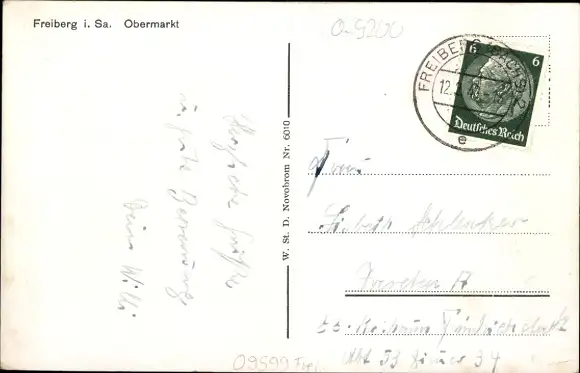 Freiberg i. Sa. Obermarkt
O-9200
FREIBERG (SACHS) 2
12.
e
6 6
Deutsches Reich
W. St. D. Novobrom Nr. 6010
Herzliche Grüße
u. gute Besserung
Dein Willi
Frau
Lisbeth
Dresden A
Abt 33 Zimmer 34
09599 Frei.